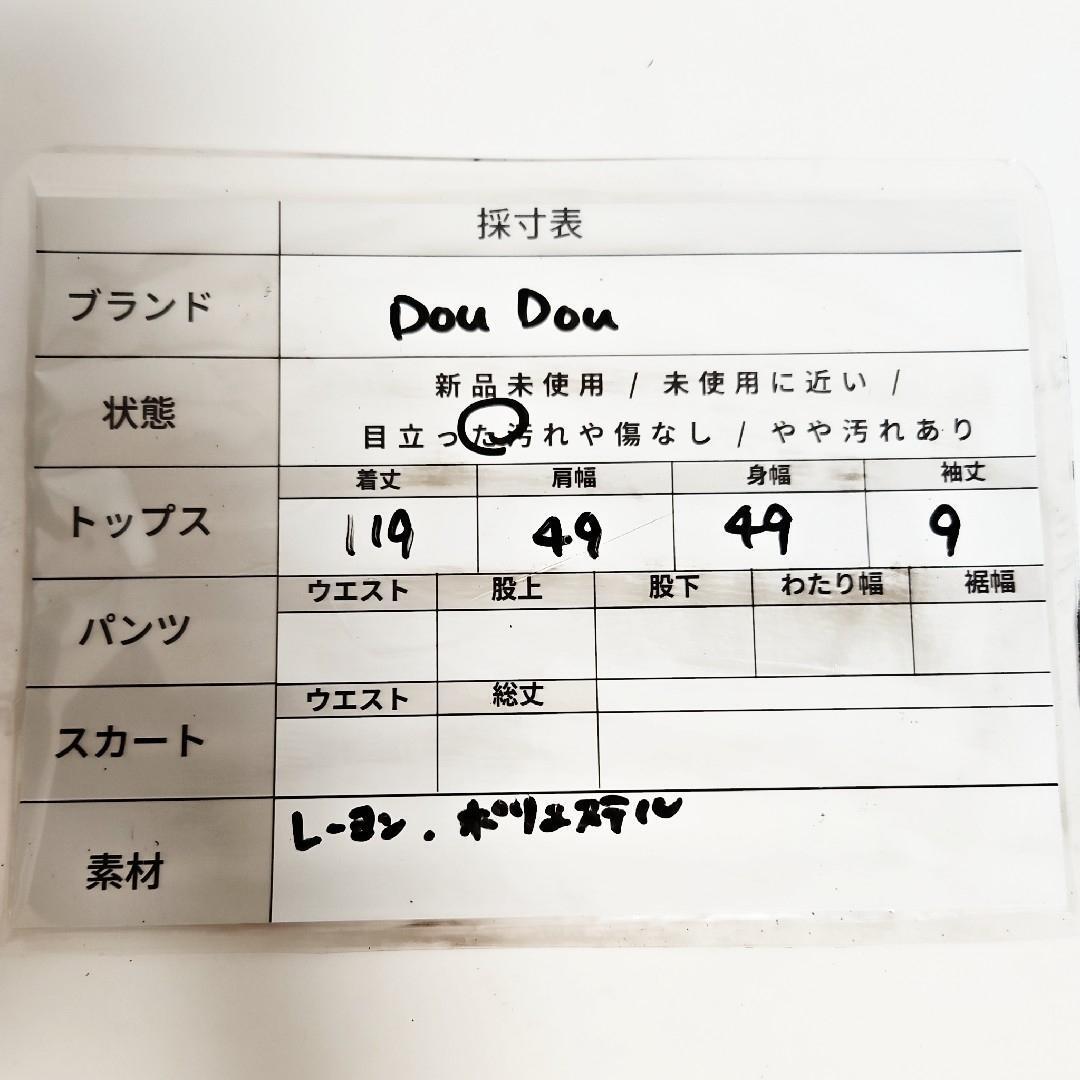 採寸表
ブランド Dou Dou
状態 新品未使用 / 未使用に近い /
目立った汚れや傷なし / やや汚れあり
着丈 肩幅 身幅 袖丈
トップス 119 49 49 9
ウエスト 股上 股下 わたり幅 裾幅
パンツ
ウエスト 総丈
スカート
レーヨン.ポリエステル
素材